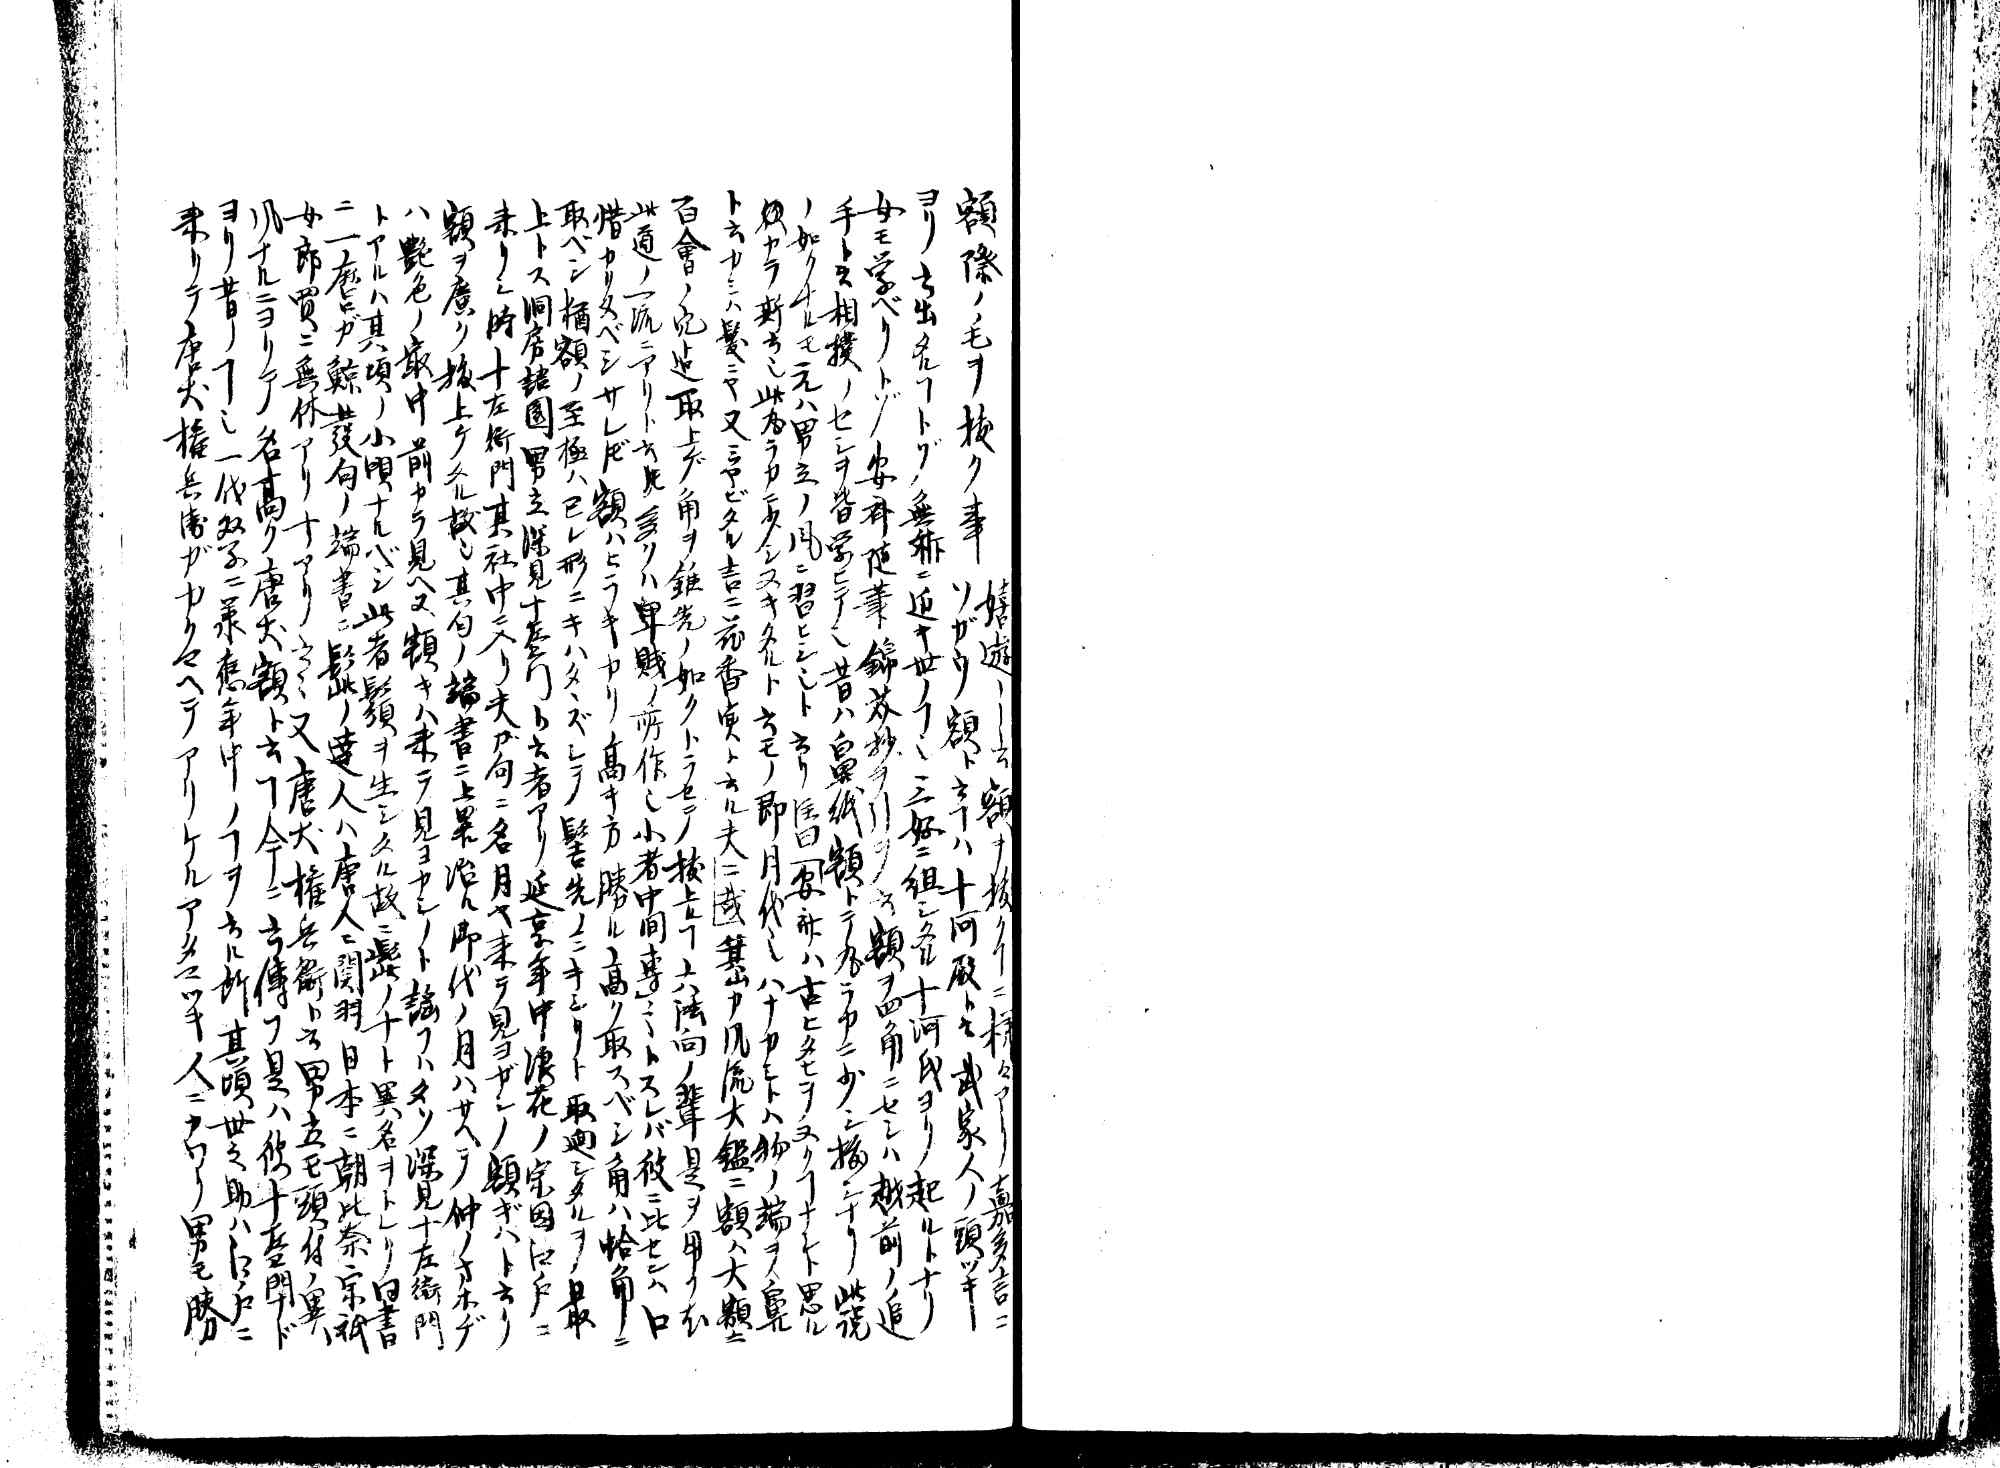 額際ノ毛ヲ抜ク事
嬉遊――云額ヲ抜クヿニ様々アリ嘉多言ニ
ソガウ額ト云ヿハ十河殿ト云武家人ノ頭ツキ
ヨリ云出タルヿトゾ無祢ニ近キ世ノヿ也三好ニ組シタル十河氏ヨリ起ルトナリ
女モ学ベリトゾ安斉随筆錦 抄ヲ引ヲ云額ヲ四角ニセシハ越前ノ追
手ト云相撲ノセシヲ皆学ヒテ也昔ハ鼻紙額トテ丸ラカニ少シ抜シナリ此説
ノ如クナルモ元ハ男立ノ風ニ習ヒシ也ト云リ 安斉ハ古ヒタセヲヌクヿナシト思ル
カラ斯云シ此丸ラカニ少シヌキタルト云モノ即月代也ハナカミトハ物ノ端ヲ鼻
ト云カミハ髪ニヤ又ミヤビタル言ニ花香実ト云ル夫ニ 箕山カ風流大鑑ニ額ハ大額ニ
百會ノ穴近取上ゲ角ヲ錐先ノ如クトラセテ抜上ヿ六法向ノ輩是ヲ用ク
此道ノ一流ニアリト云 多クハ卑賎ノ所作也小者中間専ニトスレバ彼ニ比センハ口
惜カリタベシサレ 額ハヒラキカリ高キ方勝ル高ク取スベシ角ハ蛤角ニ
取ベシ 額ノ至極ハ已レ形ニキハタズシテ髪先ノニキシリト取廻シタルヲ最
上トス洞房語園男立深見十左エ門ト云者アリ延享年中浪花ノ宗因江戸ニ
来リシ時十左衛門其社中ニ入リ夫ガ句ニ名月ヤ来テ見ヨガシノ額ギハト云リ
額ヲ廣ク抜上ケタル故也其句ノ端書ニ上 治ル御代ノ月ハサヘテ仲ノ オデ
ハ艶色ノ最中前カラ見ヘ又額キハ来テ見ヨカシノト謡フハタソ深見十左衛門
トアルハ其頃ノ小唄ナルベシ此者鬚ヲ生シタル故ニ髭ノナト異名ヲトレリ同書
ニ一麿ガ鯨 發句ノ端書ニ髭ノ達人ハ唐人ニ関羽日本ニ朝比奈宗祇
女郎買ニ無休アリナアリ云々又唐犬権兵衛ト云男立モ頭付ノ異
風ナルニヨリテ名高ク唐犬額ト云ヿ今ニ云傳フ是ハ彼十左エ門ド
ヨリ昔ノヿ也一代 子ニ承應年中ノヿヲ云ル所其頃世之助ハ江戸ニ
来リテ唐犬権兵衛ガカクマヘテアリケルアタマツキ人ニカワリ男モ勝